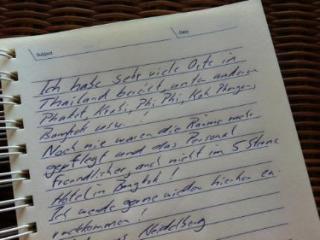 Subject Date
Ich habe sehr viele Orte in
Thailand bereist, unter anderem
Phuket, Krabi, Phi Phi, Koh Phangan,
Bangkok usw. !
Noch nie waren die Räume mehr
gepflegt und das Personal
freundlicher, auch nicht im 5 Sterne
Hotel in Bangkok !
Ich werde gerne wieder hierher
!
Heidelberg